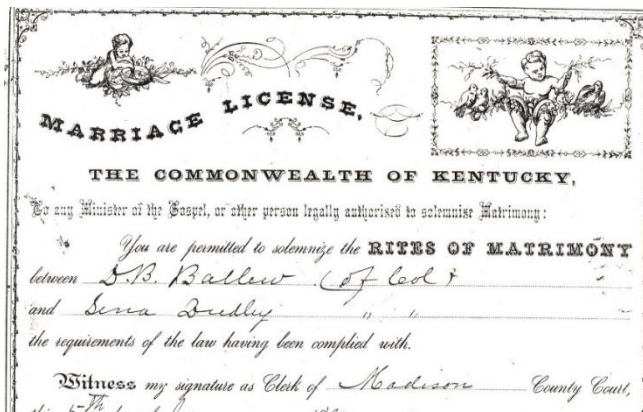 MARRIAGE LICENSE,
THE COMMONWEALTH OF KENTUCKY,
To any Minister of the Gospel, or other person legally authorised to solemnize Matrimony:
You are permitted to solemnize the RITES OF MATRIMONY
between D.B. Ballew (of Col)
and Dudley " "
the requirements of the law having been complied with.
Witness my signature as Clerk of Madison County Court,
5th